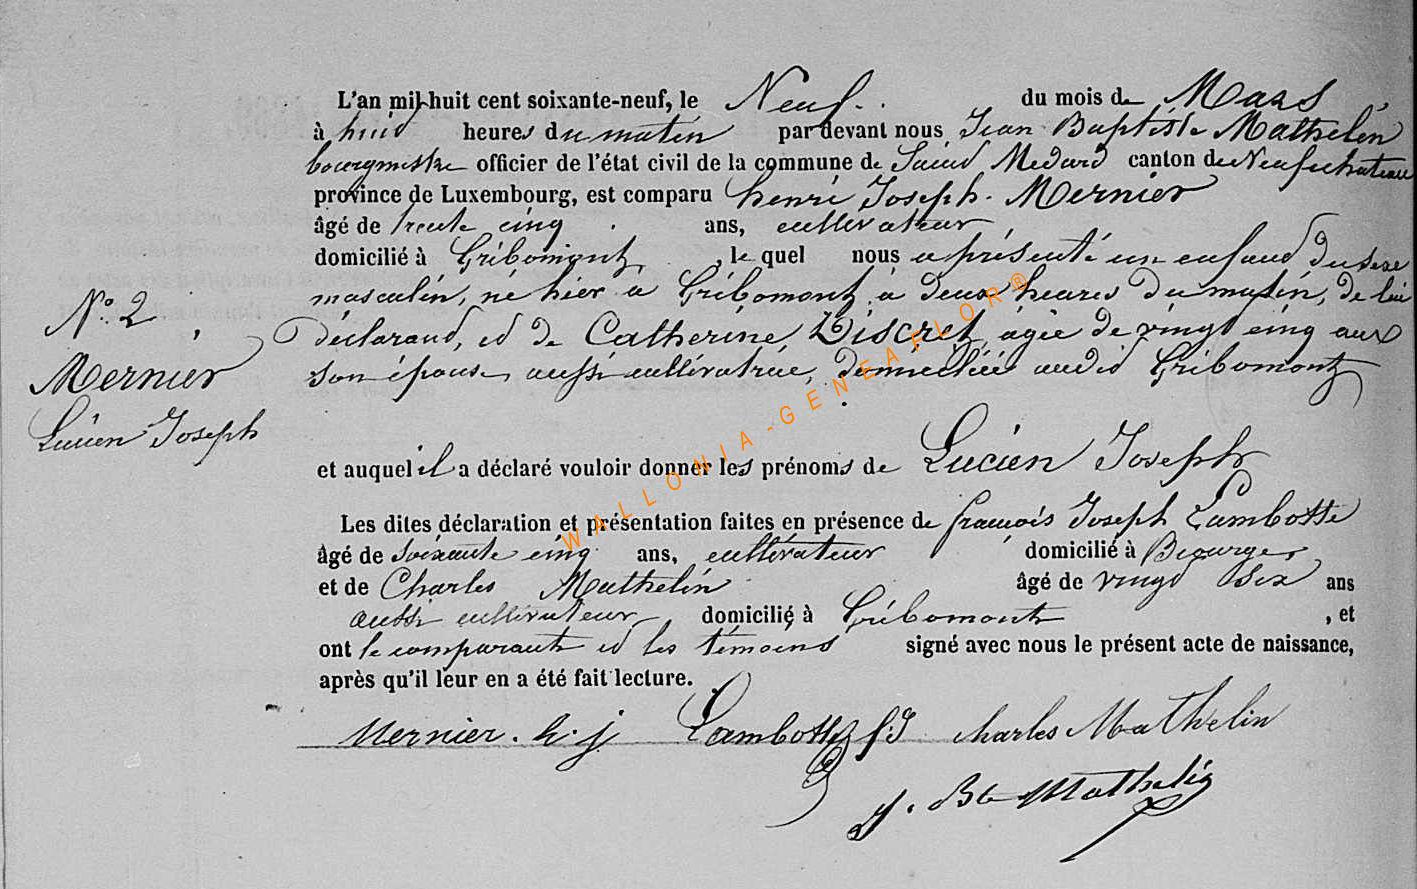 L'an mil huit cent soixante-neuf, le Neuf du mois de Mars,
à huit heures du matin par devant nous Jean Baptiste Mathelin
bourgmestre officier de l'état civil de la commune de Saint Medard canton de Neufchateau
province de Luxembourg, est comparu henri Joseph Mernier
âgé de trente cinq ans, cultivateur
domicilié à Gribomont, le quel nous a présenté un enfant du sexe
masculin, né hier a Gribomont à deux heures du matin, de lui
N° 2
déclarant, et de Catherine Discret, agée de vingt cinq ans
Mernier
son épouse, aussi cultivatrice, domiciliée audit Gribomont
Lucien Joseph
et auquel il a déclaré vouloir donner les prénoms de Lucien Joseph
Les dites déclaration et présentation faites en présence de francois Joseph Lambotte
âgé de soixante cinq ans, cultivateur domicilié à
et de Charles Mathelin âgé de vingt six ans
aussi cultivateur domicilié à Gribomont, et
ont le comparant et les témoins signé avec nous le présent acte de naissance,
après qu'il leur en a été fait lecture.
Mernier. h. j Lambotte f. J charles Mathelin
J. Bte Mathelin
WALLONIA-GENEAFLOR®